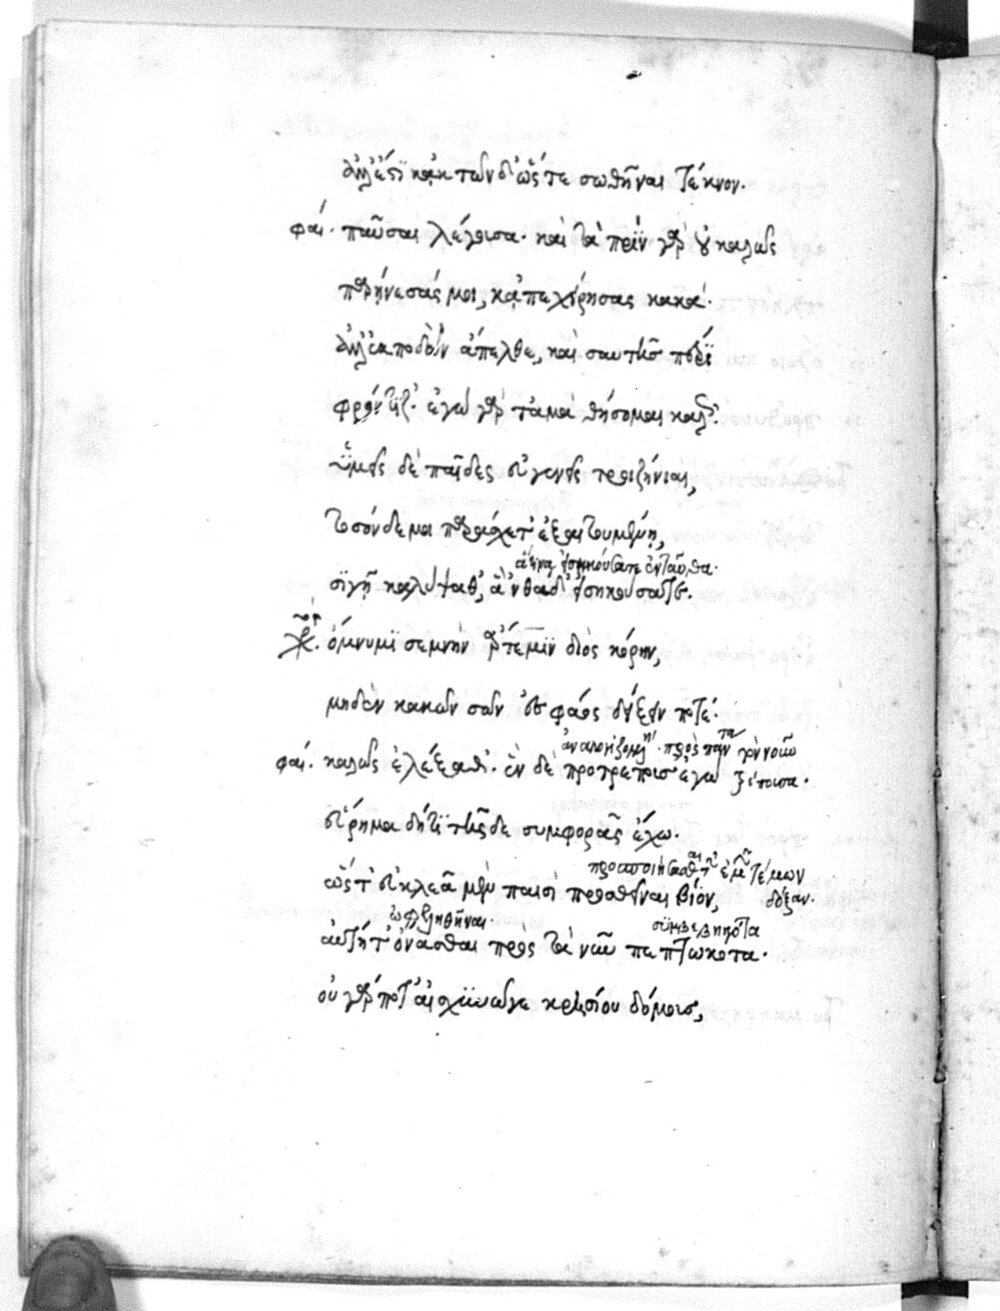 ἀλλ' ἔστι κἀκ τῶνδ' ὥστε σωθῆναι τέκνον.
φαί. παῦσαι λέγουσα· καὶ τὰ πρὶν γὰρ οὐ καλῶς
παρῄνεσάς μοι, κἀπεχείρησας κακά.
ἀλλ' ἐκποδὼν ἄπελθε, καὶ σαυτῆς πέρι
φρόντιζ'. ἐγὼ γὰρ τἀμὰ θήσομαι καλῶς.
ὑμεῖς δὲ παῖδες εὐγενεῖς τροιζήνιαι,
τοσόνδε μοι παράσχετ' ἐξαιτουμένῃ,
ἅτινα ἠκούσατε ἐνταῦθα.
σιγῇ καλύπταθ', ἃ 'νθάδ' εἰσηκούσατε.
χορ. ὄμνυμι σεμνὴν ἄρτεμιν διὸς κόρην,
μηδὲν κακῶν σῶν ἐς φάος δείξειν ποτέ.
φαί. καλῶς ἐλέξαθ'. ἓν δὲ προτρέπουσ' ἐγὼ
εὕρημα δή τι τῆσδε συμφορᾶς ἔχω.
ὥστ' εὐκλεᾶ μὲν παισὶ προσθεῖναι βίον,
δόξαν.
ὠφεληθῆναι. συμβεβηκότα
αὐτή τ' ὄνασθαι πρὸς τὰ νῦν πεπτωκότα.
οὐ γάρ ποτ' αἰσχυνῶ γε κρησίους δόμους,